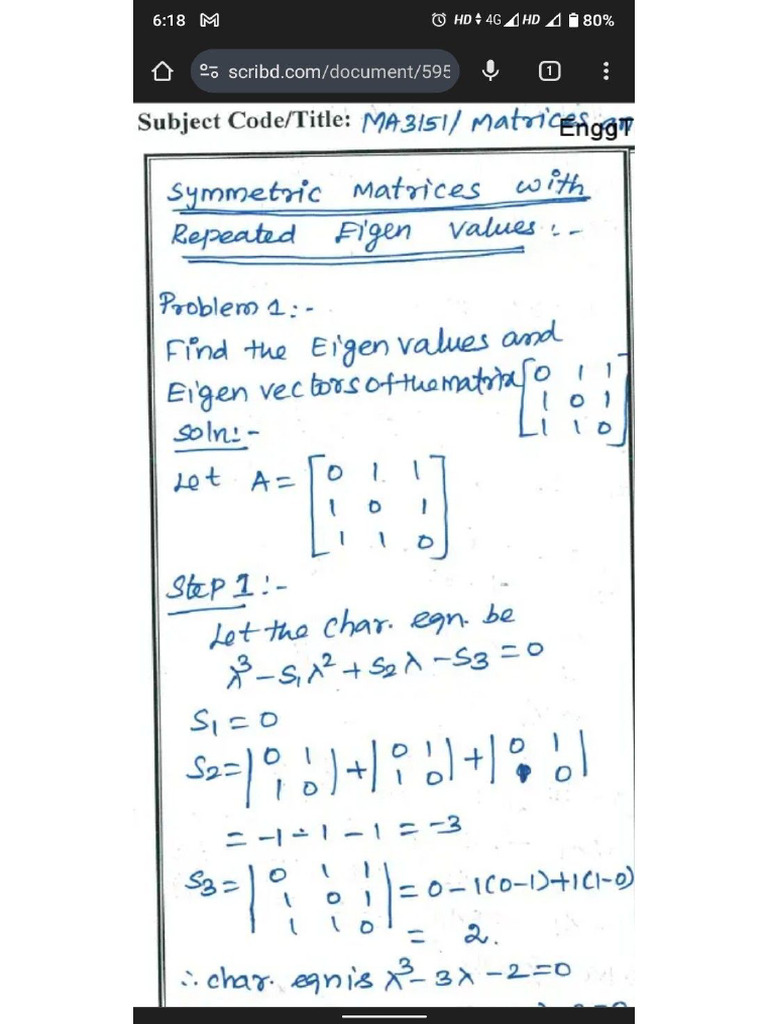 6:18 HD 4G HD 80%
scribd.com/document/595 1
Subject Code/Title: MA3151/ Matrices an
EnggT
Symmetric Matrices with
Repeated Eigen values :-
Problem 1:-
Find the Eigen values and
Eigen vectors of the matrix [0 1 1
1 0 1
1 1 0]
Soln:-
Let A = [0 1 1
1 0 1
1 1 0]
Step 1:-
Let the char. eqn. be
λ³ - S₁λ² + S₂λ - S₃ = 0
S₁ = 0
S₂ = |0 1| + |0 1| + |0 1|
|1 0| |1 0| | 0|
= -1 - 1 - 1 = -3
S₃ = |0 1 1| = 0 - 1(0-1) + 1(1-0)
|1 0 1|
|1 1 0| = 2.
∴ char. eqn is λ³ - 3λ - 2 = 0